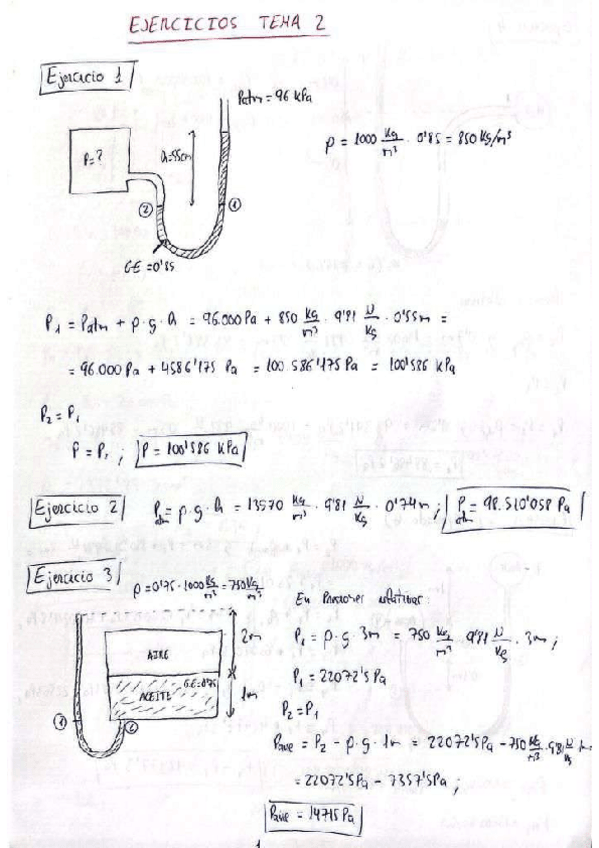 EJERCICIOS TEMA 2
Ejercicio 1
Patm = 96 kPa
P=?
h=55cm
ρ = 1000 kg/m³ · 0'85 = 850 kg/m³
② ①
G.E = 0'85
P₁ = Patm + ρ · g · h = 96.000 Pa + 850 kg/m³ · 9'81 N/kg · 0'55m =
= 96.000 Pa + 4586'175 Pa = 100.586'175 Pa = 100'586 kPa
P₂ = P₁
P = P₂ ; P = 100'586 kPa
Ejercicio 2
Patm = ρ · g · h = 13570 kg/m³ · 9'81 N/kg · 0'74m ; Patm = 98.510'058 Pa
Ejercicio 3
ρ = 0'75 · 1000 kg/m³ = 750 kg/m³
2m
AIRE
G.E=0'75
ACEITE
1m
① ②
En Presiones relativas:
P₁ = ρ · g · 3m = 750 kg/m³ · 9'81 N/kg · 3m ;
P₁ = 22072'5 Pa
P₂ = P₁
Paire = P₂ - ρ · g · 1m = 22072'5 Pa - 750 kg/m³ · 9'81 N/kg
= 22072'5 Pa - 7357'5 Pa ;
Paire = 14715 Pa
1